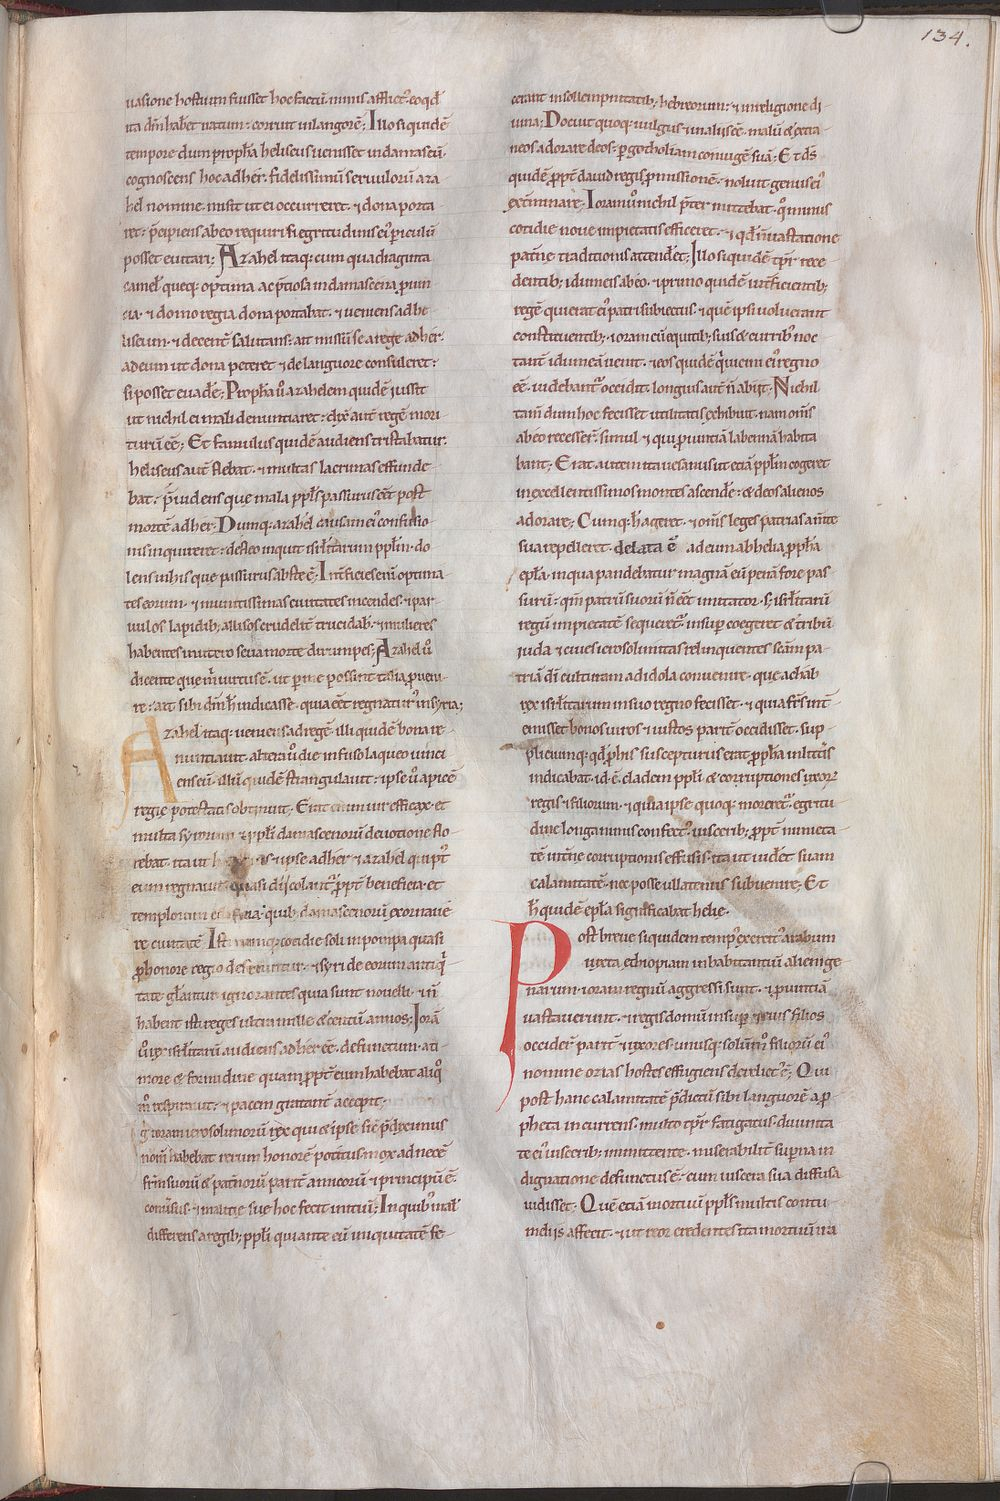 134.
uasione hostium fuisset hoc factū. nimis afflict᷒. eo qđ
ita dm̄ habet᷒ iratum. corruit in langorē; Illo siquidē
tempore dum ꝓpha heliseus uenisset in damascū.
cognoscens hoc adher. fidelissimū seruulorū aza
hel nomine. misit ut ei occurreret. & dona porta
ret. p̄cipiens ab eo requiri si egritudinis ei᷒ periculū
posset euitari; Azahel itaq; cum quadraginta
camel᷒ queq; optima ac p̄tiosa in damascena ꝓuin
cia. & domo regia dona portabat. & ueniens ad he
liseum. & decent̄ salutans. ait missū se a rege adher.
ad eum ut dona peteret & de languore consuleret.
si posset euadē; Propha ů azahelem quidē iussit
ut nichil ei mali denuntiaret. dix̄ aut̄ regē mori
turū eē; Et famulus quidē audiens tristabatur.
heliseus aut̄ flebat. & multas lacrimas effunde
bat. p̄uidens que mala ppl̄s passurus eēt post
mortē adher. Dumq; azahel causam ei᷒ confusio
nis inquireret. defleo inquit isrl̄itarum ppl̄m. do
lens uihis que passurus abs te ē; Int̄ficies eni optima
tes eorum. & munitissimas ciuitates incendes. & par
uulos lapidib; allisos crudelit̄ trucidab᷒. & mulieres
habentes in utero seua morte dirumpes; Azahel ů
dicente que m̄ uirtus ē. ut per me possint talia ꝓueni
re. ait. sibi dm̄ h̄ indicasse. quia eēt regnatur᷒ in syria;
Azahel itaq; ueniens ad regē. illi quidē bona re
nuntiauit. altera ů die infuso laqueo uinci
ens eū. illū quidē strangulauit. ipse ů apicē
regie potestatis obtinuit. Erat enim uir efficax. et
multa syrorum & ppl̄i damascenorū deuotione flo
rebat. ita ut & ipse adher & azahel qui pt᷒
eum regnauit quasi dii colant᷒. ꝓpt̄ beneficia. et
templorum edificia. quib; damascenorū exornaue
re ciuitatē. Isti namq; cotidie soli in pompa quasi
ꝓ honore regio deferuntur. & syri de eorum antiq᷒
tate gl̄antur. ignorantes quia sunt nouelli. & n̄
habent isti reges ultra mille & centū annos; Iorā
ů rex isrl̄itarū audiens adher eē defunctum. a ti
more & formidine quam ꝓpt̄ eum habebat aliqͦ
m̄ respirauit. & pacem gratant̄ accepit.
g᷒ ioram ierosolimorū rex qui & ipse sic᷒ p̄diximus
nom̄ habebat. rerum honorē potitus. mox ad necē
fr̄m suorū & pat̄norū parit̄ amicorū & principū ē
conuersus. & malitie sue hoc fecit initiū; In quib᷒ mal᷒
differens a regib; ppl̄i qui ante eū iniquitatē fe
cerant in sollempnitatib; hebreorum. & in religione di
uina; Docuit quoq; uulgus in aliis eē malū & extra
neos adorare deos. ꝑ gotholiam coniugē suā; Et ds̄
quidē ꝓpt̄ dauid regis ꝓmissionē. noluit genus ei᷒
ext̄minare. Ioram ů nichil p̄termittebat. qͦ minus
cotidie noue impietatis efficeret. & qd̄ in uastatione
pat̄ne traditionis attendet᷒. Illo siquidē tpr̄ rece
dentib; idumeis ab eo. & primo quidē int̄ficientib;
regē qui erat ei᷒ patri subiectus. & quē ipsi uoluerant
constituentib; ioram cū equitib; suis & currib᷒ noc
te in idumeā uenit. & eos quidē qui uicini ei᷒ regno
eē uidebant᷒ occidit. longius aut̄ n̄ abiit. Nichil
tam̄ dum hoc fecisset utilitatis exhibuit. nam oms̄
ab eo recesser̄. simul & qui ꝓuintiā labennā habita
bant; Erat autem ita uesanus ut etiā ppl̄m cogeret
in excellentissimos montes ascendē. & deos alienos
adorare; Cumq; h̄ ageret. & oms̄ leges patrias a m̄te
sua repelleret. delata ē ad eum ab helia ꝓpha
epl̄a. in qua pandebatur magnā eū penā fore pas
surū. qm̄ patrū suorū n̄ eēt imitator. s᷒ isrl̄itarū
regū impietatē sequeret᷒. insup coegeret & tribū
iuda & ciues ierosolimitas relinquentes sc̄am pa
triā di culturam ad idola conuenire. que achab
rex isrl̄itarum in suo regno fecisset. & quia fr̄s int̄
emisset bonos uiros & iustos parit̄ occidisset. sup
pliciumq; qd̄ ꝓ his suscepturus erat ꝓpha in litt̄is
indicabat. id ē. cladem ppl̄i & corruptiones uxor᷒
regis & filiorum. & quia ipse quoq; moreret᷒. egritu
dine longa nimis confect᷒. uiscerib; ꝓpt̄ nimieta
tē int̄ne corruptionis effusis. ita ut uidet᷒ suam
calamitatē. nec posse ullatenus subuenire; Et
h̄ quidē epl̄a significabat helie.
Post breue siquidem temp᷒ exercit᷒ arabum
iuxta ethiopiam inhabitantiū alienige
narum. ioram regnū aggressi sunt. & ꝓuintiā
uastauerunt. & regis domū insup & ei᷒ filios
occider̄ parit̄ & uxores. unusq; solūm filiorū ei᷒
nomine ozias hostes effugiens derelict᷒ ē; Qui
post hanc calamitatē p̄dictū sibi languorē a ꝓ
pheta incurrens. multo tpr̄ fatigatus. diuinita
te ei᷒ uiscerib; inmittente. miserabilit̄ supna in
dignatione defunctus ē. cum uiscera sua diffusa
uidisset. Quē etiā mortuū ppl̄s multis contu
meliis affecit. & ut reor credentes ita mortuū ira